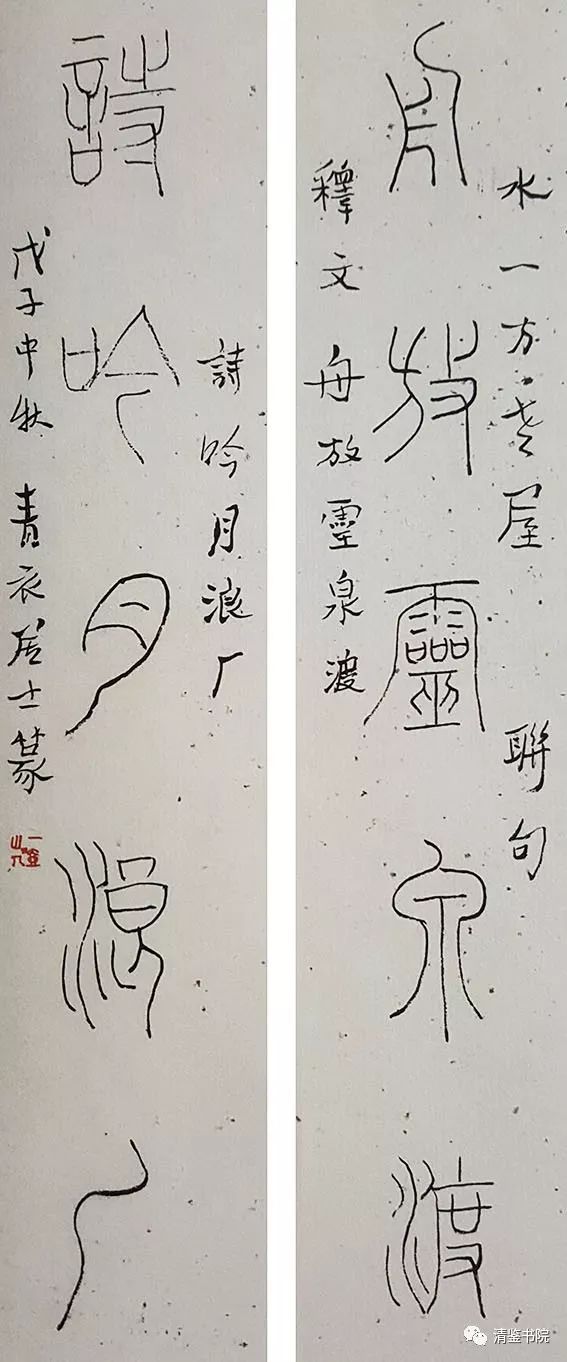 水一方·老屋 聯句
舟放靈泉渡
釋文 舟放靈泉渡
詩吟月浪厂
詩吟月浪厂
戊子中秋 青衣居士篆
清鉴书院